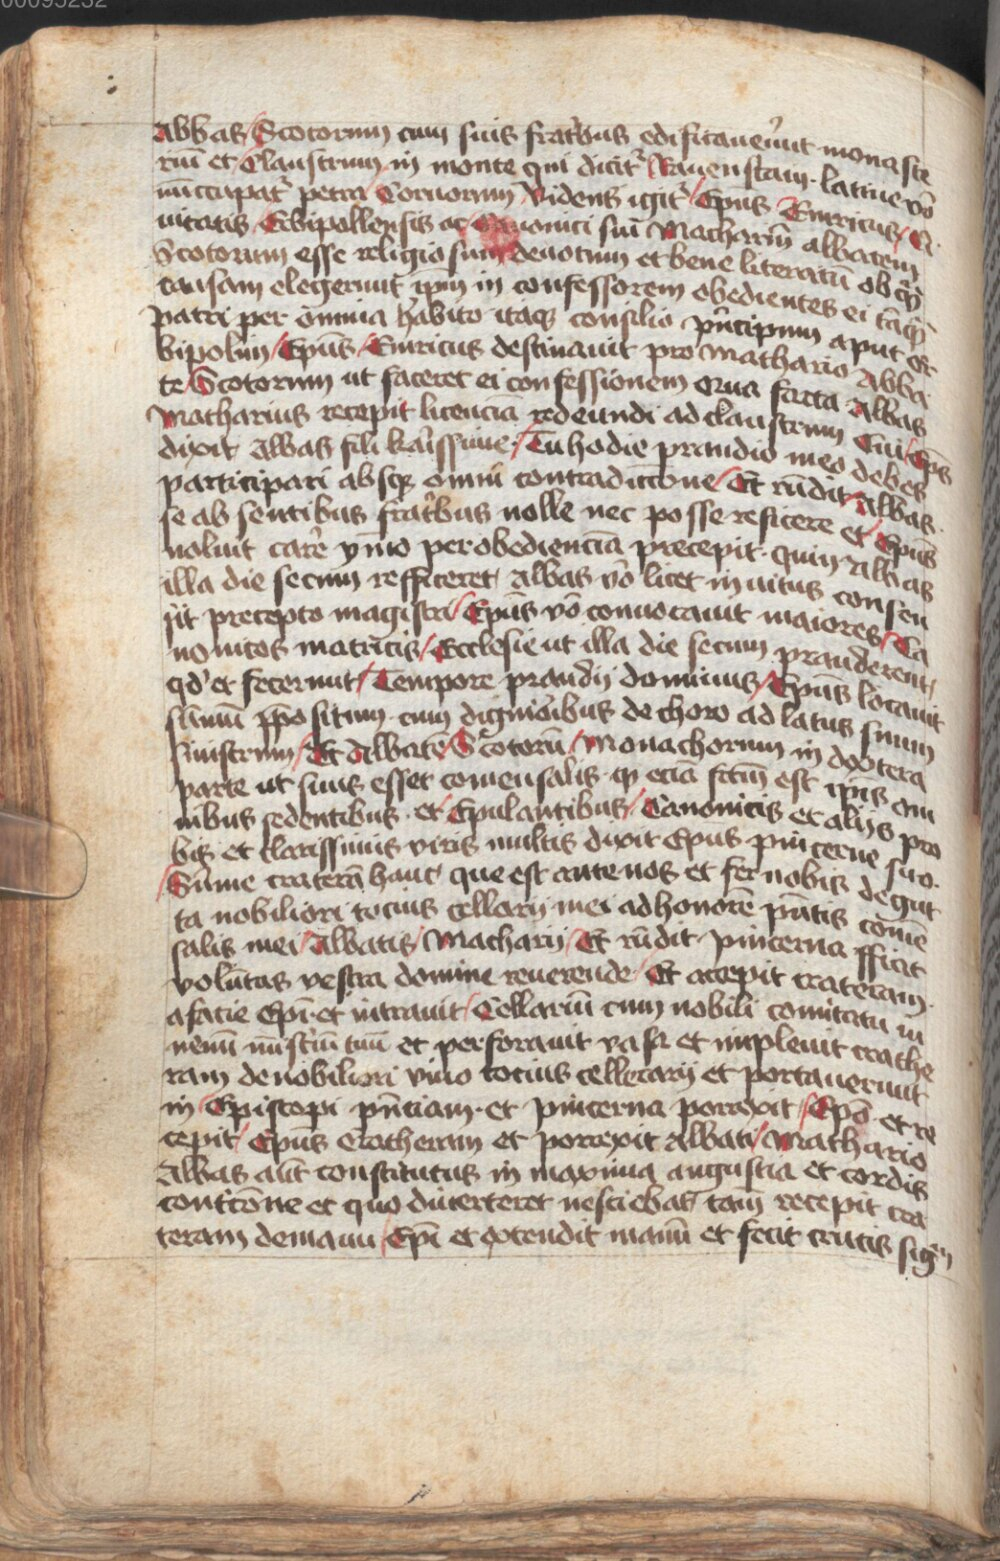 00095252
Abbas Scotorum cum suis fratribus edificaverunt monaste
riū et Claustrum in monte qui dicit᷑ Ravenstain · latine vō
nūccupat᷑ petra Corvorum Videns igit᷑ Epūs Enricus Ci
vitatis Erbipollensis ac Canonici sui Macharīū abbatem
Scotorum esse religiosum devotum et bene literatū ob q̄
causam elegerunt ip̄m in confessorem obedientes ei tāq̄
patri per omnia habito itaq₃ consilio pn̄cipum aput er
bipolim Epūs Enricus destinavit pro Mathario Abba
te Scotorum ut faceret ei confessionem qua facta Abbas
Matharius recepit licenciā redeundi ad claustrum Cui Epūs
dixit Abbas fili karissime Tu hodie prandio meo debes
participari absq₃ omni contradiccōne Et rn̄dit Abbas
se absentibus fratribus nolle nec posse reficere et Epūs
noluit carē ymo per obedienciā precepit · quin Abbas
illa die secum refficeret Abbas vō licet invitus consen
sit precepto magistri Epūs vō convocavit maiores Ca
nonicos matricis Ecclesie ut illa die secum pranderent
qd' et fecerunt Tempore prandij dominus Epūs locavit
sūmū p̄positum cum dignioribus de choro ad latus suum
sinistrum Et Abbatē Scotorū Monachorum in dextera
parte ut suus esset comensalis · q₃ eciā fc̄m est ip̄is om
nibus sedentibus · et Epulantibus Canonicis et alijs pro
bis et clarissimis viris multis dixit Epus pincerne suo ·
Sume craterā hanc que est ante nos et fer nobis de gut
ta nobiliori tocius cellarij mei ad honorē pn̄tis comē
salis mei Abbatis Macharij Et rn̄dit pincerna efficit᷑
voluntas vestra domine reverende Et accepit crateram
a facie Epī · et intravit Cellariū cum nobili comitatu in
et perforavit vasa et implevit crathe
ram de nobiliori vino tocius cellerarij et portaverunt
in Episcopi pn̄tiam · et pincerna porrexit Epō · et re
cepit Epūs cratheram et porrexit Abbati Mathario
Abbas aūt constitutus in maxima angustia et cordis
contricōne et quo diverteret nesciebat tam̄ recepit cra
teram de manu Epī et extendit manū et fecit crucis sign